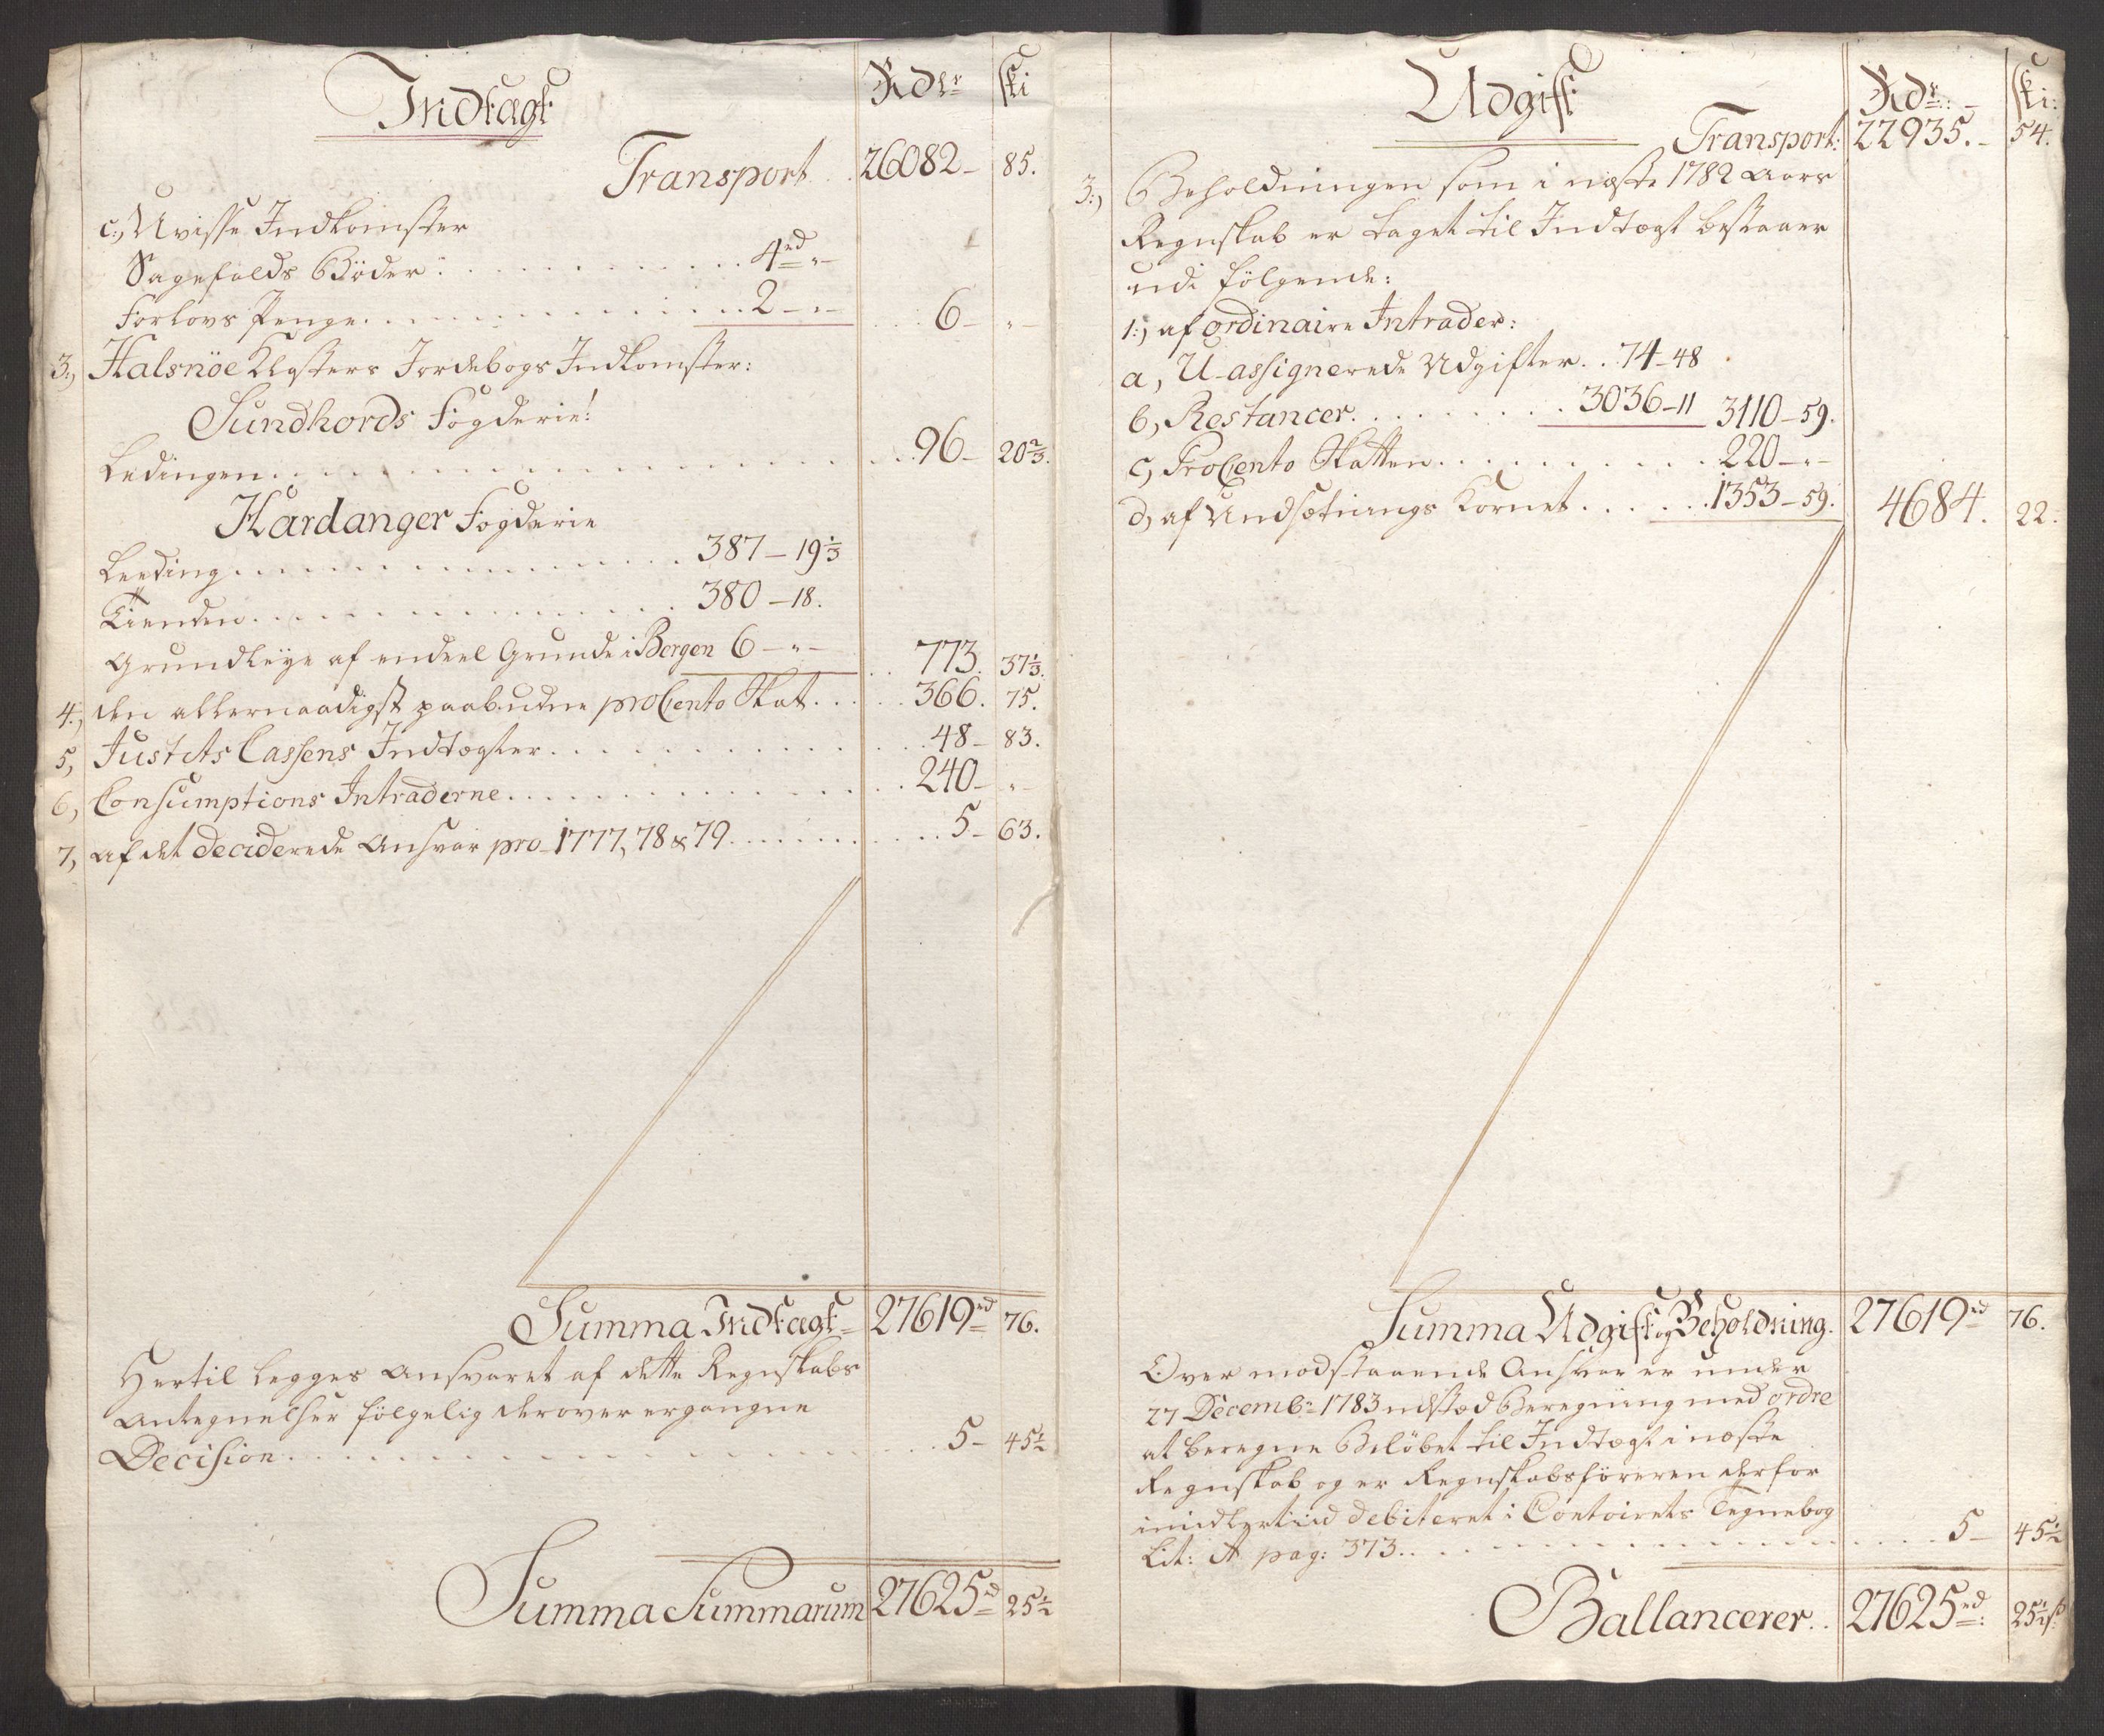 Indtægt
Rdlr ski
Transport 26082 – 85.
c:, Uvisse Indkomster
Sagefalds Bøder . . . 4rd " –
Forlovs Penge . . . 2 – " – . . 6 – " –
3:, Halsnöe Klosters Jordebogs Indkomster:
Sundhords Fogderie:
Ledingen . . . 96 – 20 2/3.
Hardanger Fogderie
Leeding . . . 387 – 19 1/3
Tienden . . . 380 – 18.
Grundleye af endeel Grunde i Bergen 6 – " – . . 773. 37 1/3.
4:, den allernaadigst paabudne proCento Skat . . . 366. 75.
5, Justits Cassens Indtægter . . . 48 – 83.
6, Consumptions Intraderne . . . 240 – " –
7, af det deciderede Ansvar pro 1777, 78 & 79 . . . 5 – 63.
Summa Indtægt 27619rd 76.
Hertil legges Ansvaret af dette Regnskabs
Antegnelser følgelig derover ergangne
Decision . . . 5 – 45 1/2
Summa Summarum 27625rd 25 1/2
Udgift
Rdr: ski:
Transport: 22935. – 54.
3:, Beholdningen som i næste 1782 Aars
Regnskab er taget til Indtægt bestaaer
udi følgende:
1:, af ordinaire Intrader:
a, U-assignerede Udgifter . . 74 – 48
b, Restancer . . . 3036 – 11 3110 – 59.
c, ProCento Skatten . . . 220 – " –
d, af Undsætnings Kornet . . . 1353 – 59. 4684. 22.
Summa Udgift og Beholdning. 27619rd 76.
Over modstaaende Ansvar er under
27 Decembr 1783 udstæd Beregning med ordre
at beregne Beløbet til Indtægt i næste
Regnskab og er Regnskabsføreren derfor
imidlertiid debiteret i Contoirets Tegnebog
Lit: A pag: 373. . . . 5 – 45 1/2
Ballancerer . . 27625rd: 25 1/2 s.